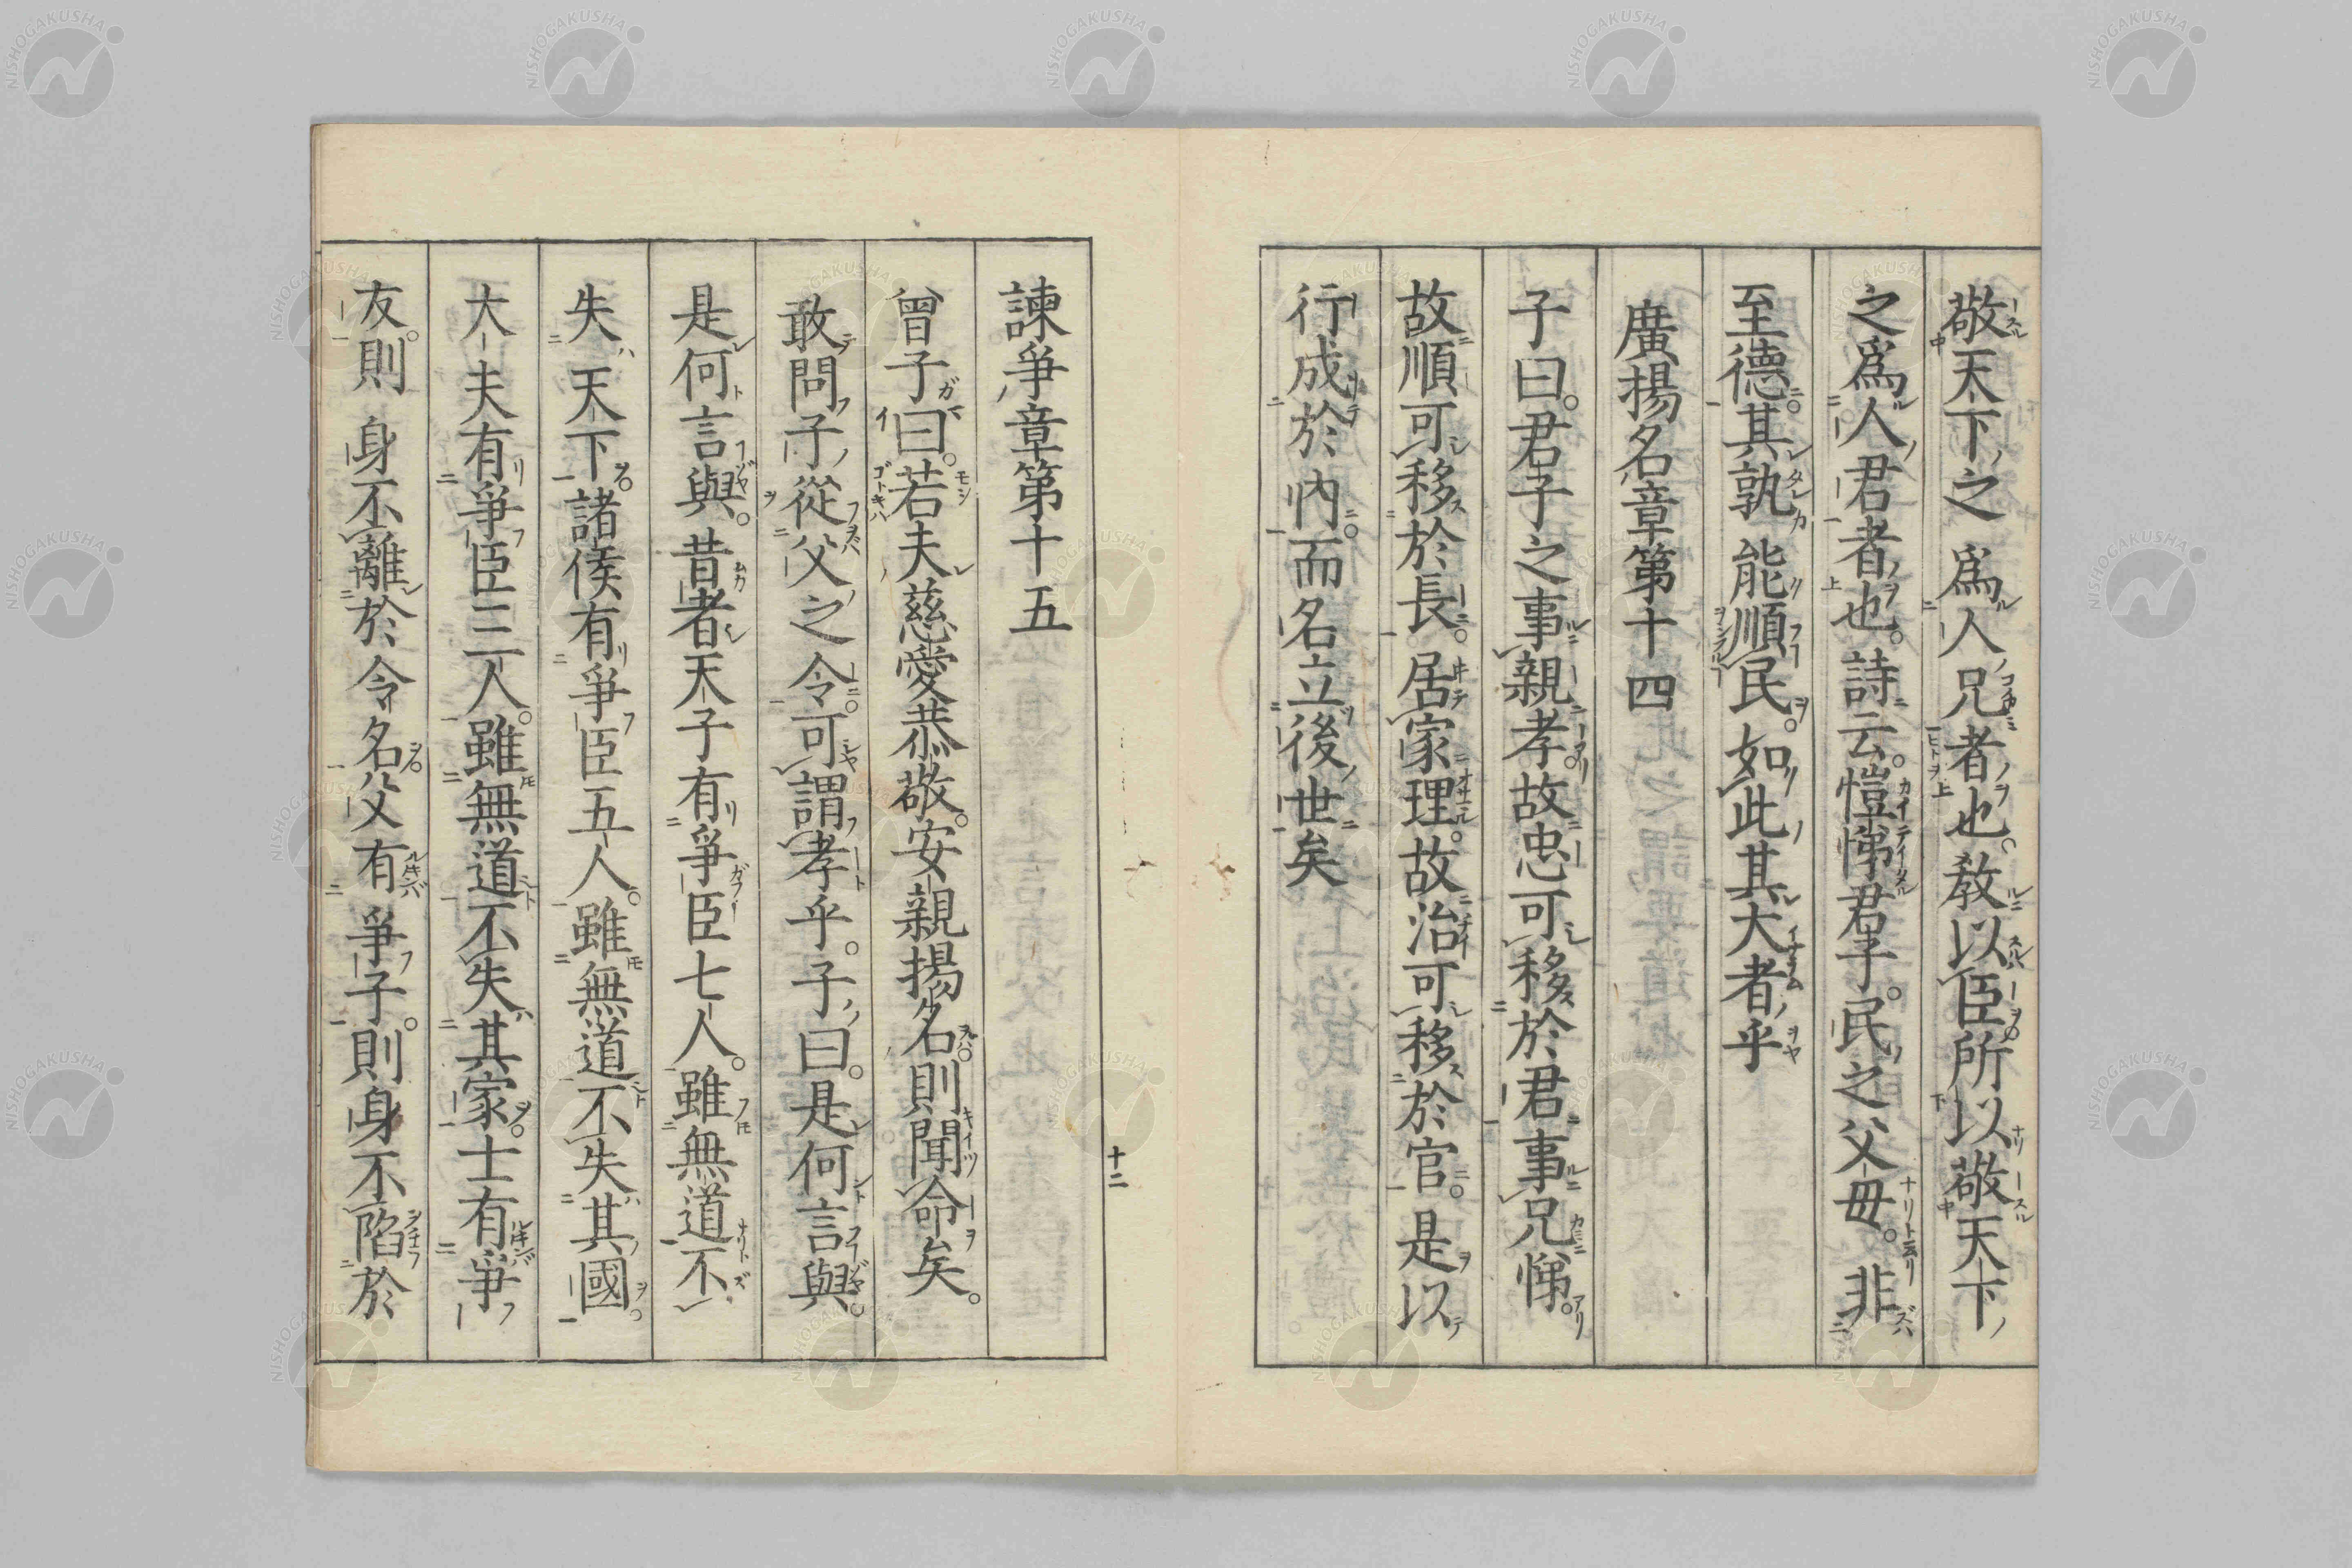 敬天下之爲人兄者也。敎以臣所以敬天下
之爲人君者也。詩云。愷悌君子。民之父母。非
至德。其孰能順民。如此其大者乎
廣揚名章第十四
子曰。君子之事親孝。故忠可移於君事兄悌。
故順可移於長。居家理。故治可移於官。是以
行成於內。而名立後世矣
諫爭章第十五
曾子曰。若夫慈愛恭敬。安親揚名。則聞命矣。
敢問子從父之令。可謂孝乎。子曰。是何言與。
是何言與。昔者天子有爭臣七人。雖無道不
失天下。諸侯有爭臣五人。雖無道不失其國。
大夫有爭臣三人。雖無道不失其家。士有爭
友。則身不離於令名。父有爭子。則身不陷於
十二
NISHOGAKUSHA